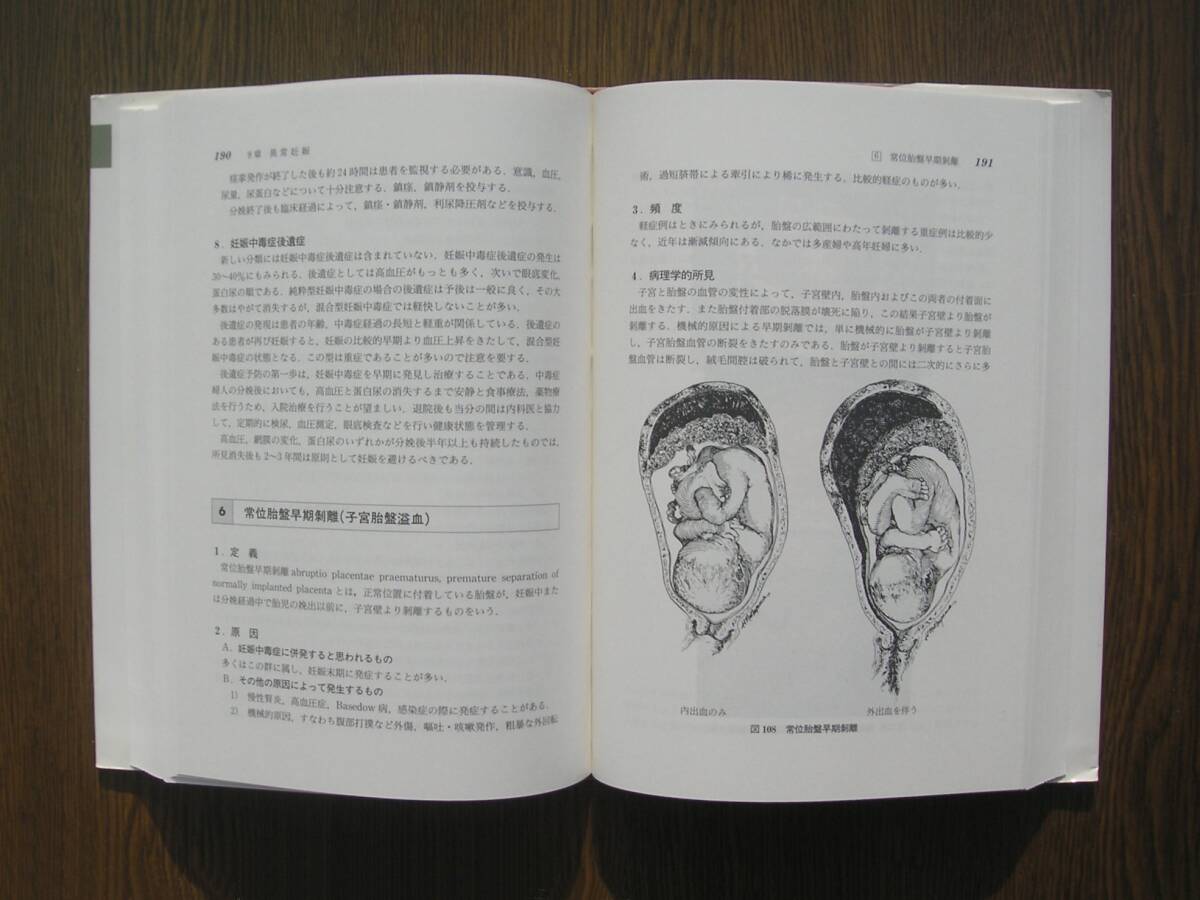 190 9章 異常妊娠
痙攣発作が終了した後も約24時間は患者を監視する必要がある．意識，血圧，
尿量，尿蛋白などについて十分注意する．鎮痙，鎮静剤を投与する．
分娩終了後も臨床経過によって，鎮痙・鎮静剤，利尿降圧剤などを投与する．
8．妊娠中毒症後遺症
新しい分類には妊娠中毒症後遺症は含まれていない．妊娠中毒症後遺症の発生は
30〜40％にもみられる．後遺症としては高血圧がもっとも多く，次いで眼底変化，
蛋白尿の順である．純粋型妊娠中毒症の場合の後遺症は予後は一般に良く，その大
多数はやがて消失するが，混合型妊娠中毒症では軽快しないことが多い．
後遺症の発現は患者の年齢，中毒症経過の長短と軽重が関係している．後遺症の
ある患者が再び妊娠すると，妊娠の比較的早期より血圧上昇をきたして，混合型妊
娠中毒症の状態となる．この型は重症であることが多いので注意を要する．
後遺症予防の第一歩は，妊娠中毒症を早期に発見し治療することである．中毒症
婦人の分娩後においても，高血圧と蛋白尿の消失するまで安静と食事療法，薬物療
法を行うため，入院治療を行うことが望ましい．退院後も当分の間は内科医と協力
して，定期的に検尿，血圧測定，眼底検査などを行い健康状態を管理する．
高血圧，網膜の変化，蛋白尿のいずれかが分娩後半年以上も持続したものでは，
所見消失後も2〜3年間は原則として妊娠を避けるべきである．
6 常位胎盤早期剝離（子宮胎盤溢血）
1．定 義
常位胎盤早期剝離 abruptio placentae praematurus, premature separation of
normally implanted placenta とは，正常位置に付着している胎盤が，妊娠中また
は分娩経過中で胎児の娩出以前に，子宮壁より剝離するものをいう．
2．原 因
A．妊娠中毒症に併発すると思われるもの
多くはこの群に属し，妊娠末期に発症することが多い．
B．その他の原因によって発生するもの
1） 慢性腎炎，高血圧症，Basedow病，感染症の際に発症することがある．
2） 機械的原因，すなわち腹部打撲など外傷，嘔吐・咳嗽発作，粗暴な外回転
6 常位胎盤早期剝離 191
術，過短臍帯による牽引により稀に発生する．比較的軽症のものが多い．
3．頻 度
軽症例はときにみられるが，胎盤の広範囲にわたって剝離する重症例は比較的少
なく，近年は漸減傾向にある．なかでは多産婦や高年妊婦に多い．
4．病理学的所見
子宮と胎盤の血管の変性によって，子宮壁内，胎盤内およびこの両者の付着面に
出血をきたす．また胎盤付着部の脱落膜が壊死に陥り，この結果子宮壁より胎盤が
剝離する．機械的原因による早期剝離では，単に機械的に胎盤が子宮壁より剝離
し，子宮胎盤血管の断裂をきたすのみである．胎盤が子宮壁より剝離すると子宮胎
盤血管は断裂し，絨毛間腔は破られて，胎盤と子宮壁との間には二次的にさらに多
内出血のみ
外出血を伴う
図108 常位胎盤早期剝離